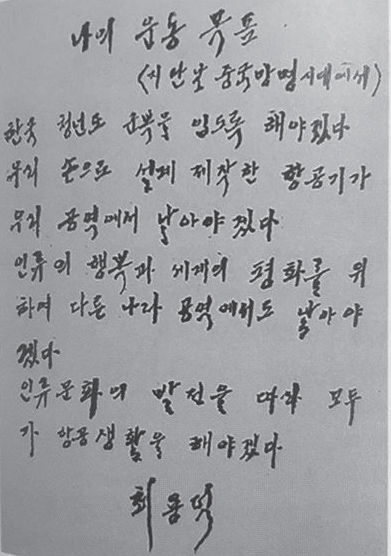 나의 운동 목표
(지난날 중국망명시대에서)
한국 청년도 군복을 입도록 해야겠다
우리 손으로 설계 제작한 항공기가
우리 공역에서 날아야겠다
인류의 행복과 세계의 평화를 위
하여 다른 나라 공역에서도 날아야
겠다
인류문화의 발전을 따라 모두
가 항공생활을 해야겠다
최용덕